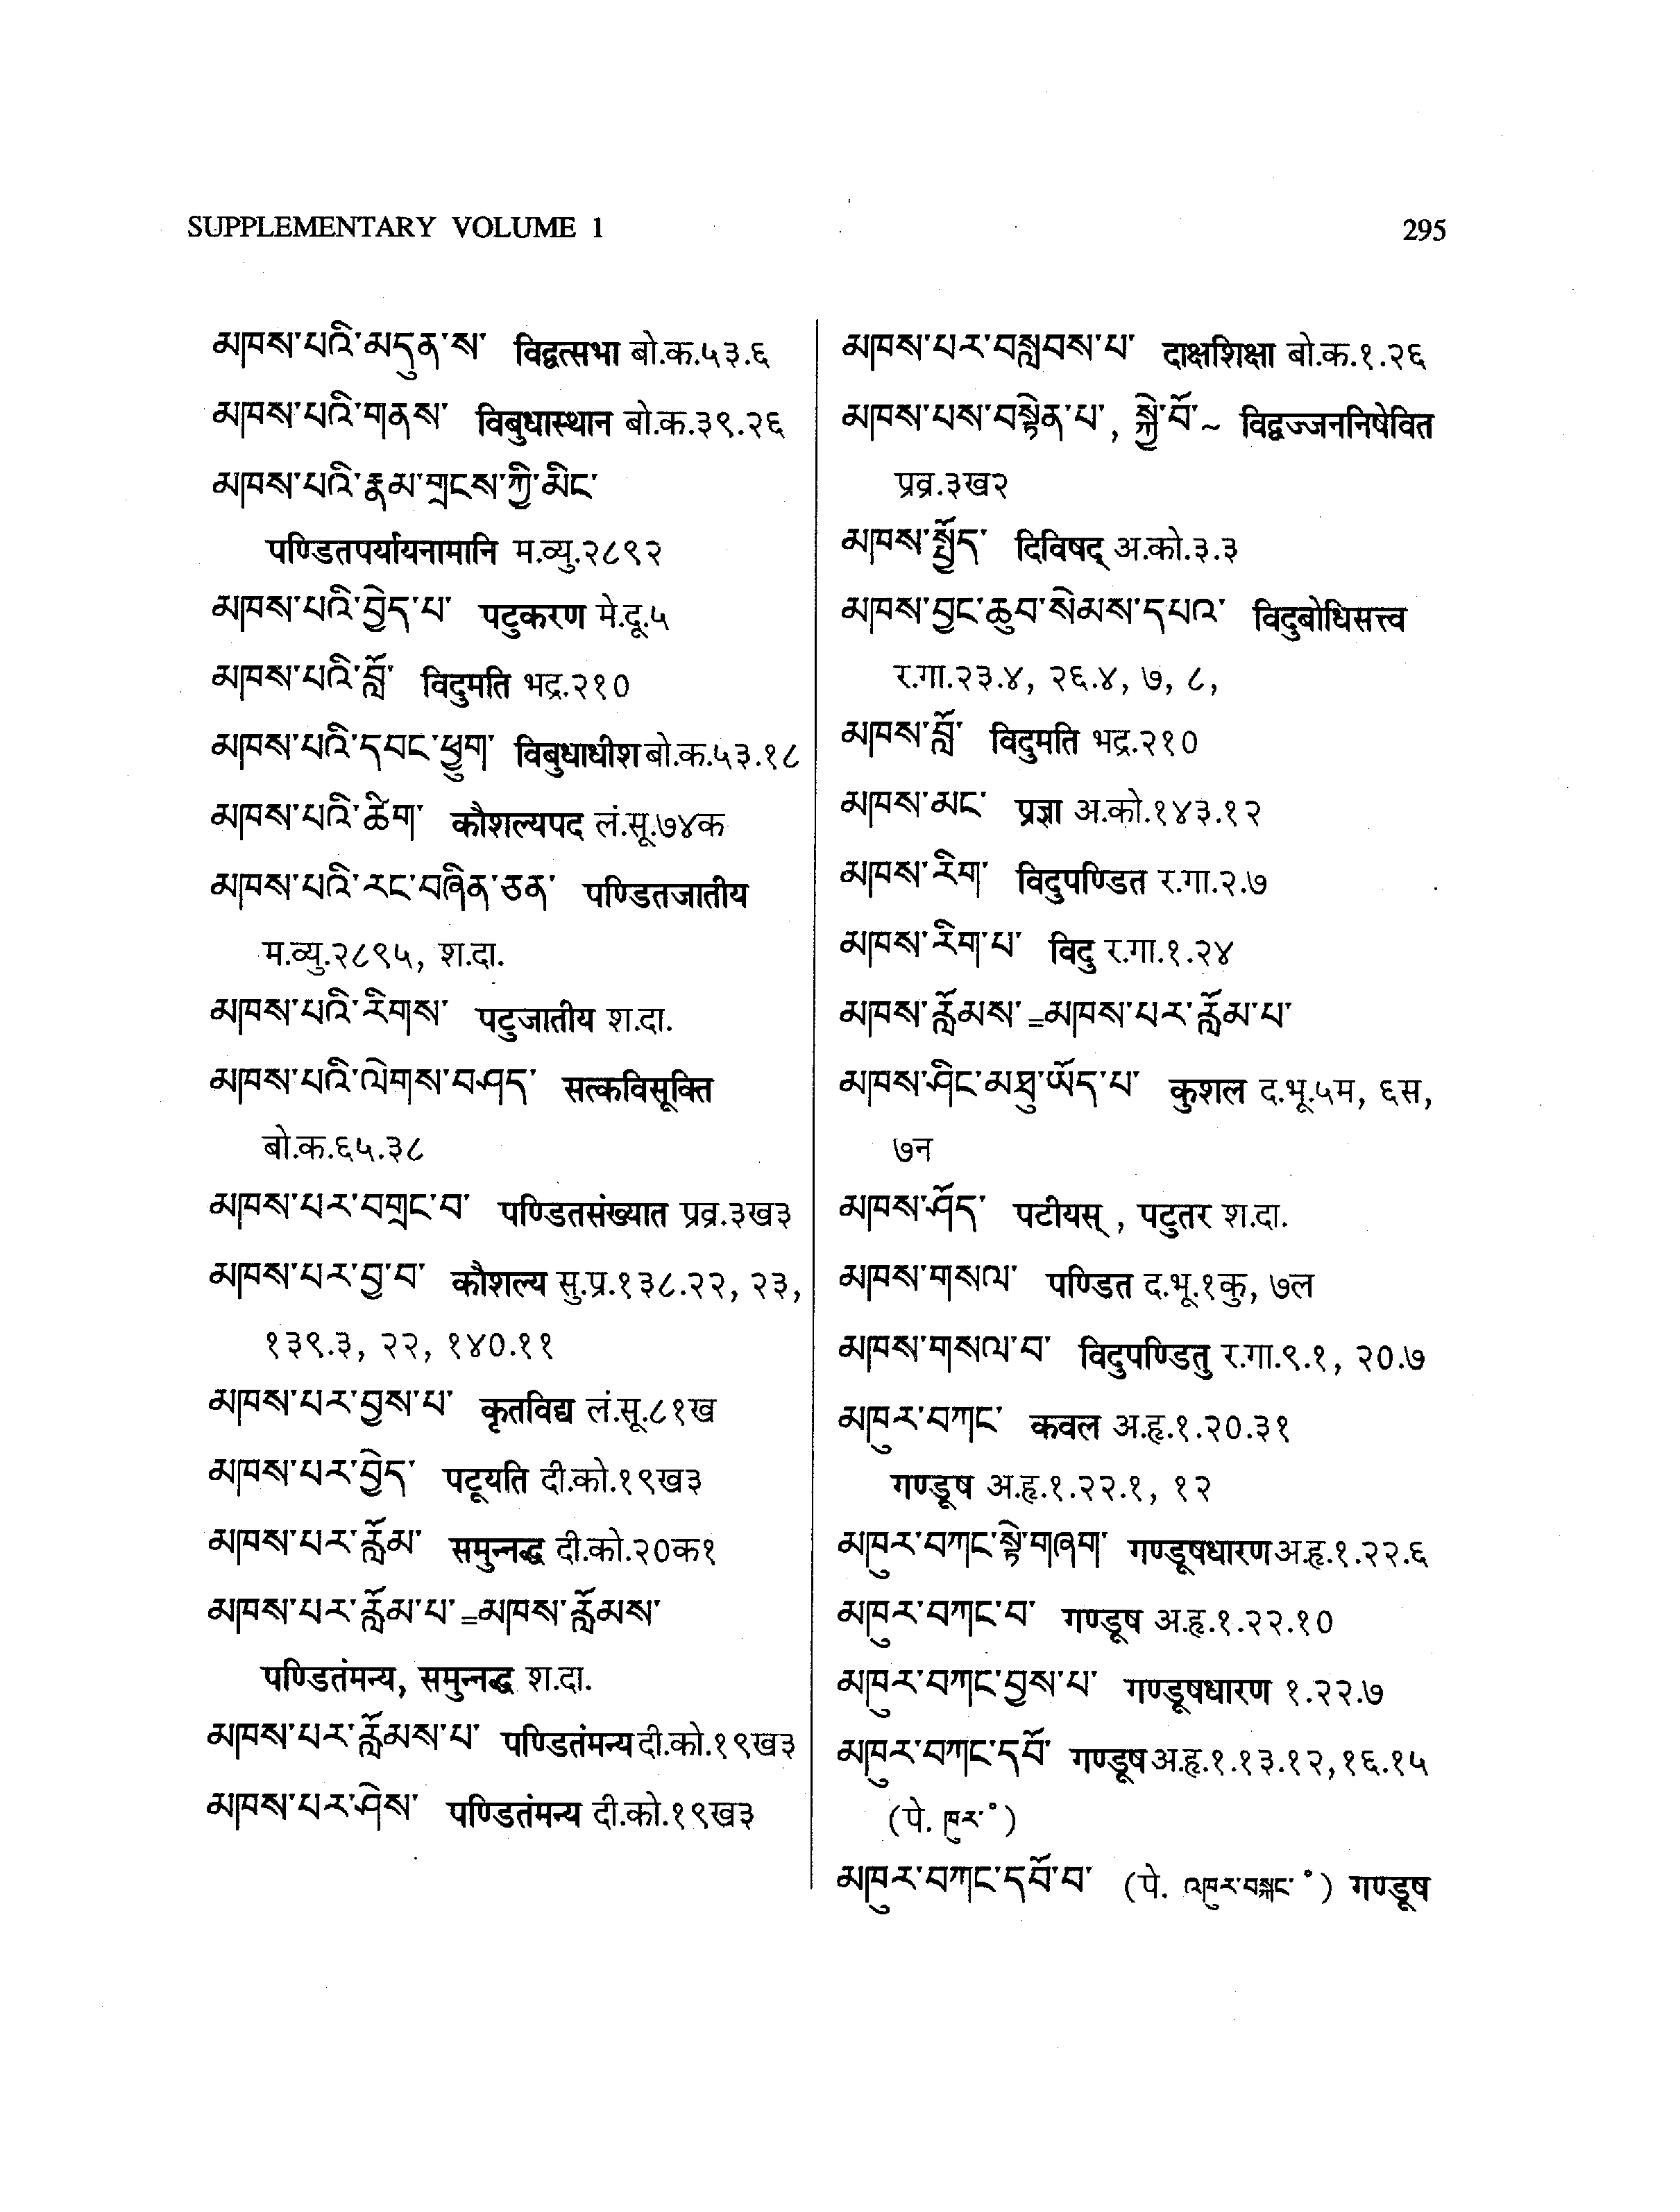 SUPPLEMENTARY VOLUME 1
295
མཁས་པའི་མདུན་ས་ विद्वत्सभा बो.क.५३.६
མཁས་པའི་གནས་ विबुधास्थान बो.क.३९.२६
མཁས་པའི་རྣམ་གྲངས་ཀྱི་མིང་
पण्डितपर्यायनामानि म.व्यु.२८९२
མཁས་པའི་བྱེད་པ་ पटुकरण मे.दू.५
མཁས་པའི་བློ་ विदुमति भद्र.२१०
མཁས་པའི་དབང་ཕྱུག་ विबुधाधीश बो.क.५३.१८
མཁས་པའི་ཚིག་ कौशल्यपद लं.सू.७४क
མཁས་པའི་རང་བཞིན་ཅན་ पण्डितजातीय
म.व्यु.२८९५, श.दा.
མཁས་པའི་རིགས་ पटुजातीय श.दा.
མཁས་པའི་ལེགས་བཤད་ सत्कविसूक्ति
बो.क.६५.३८
མཁས་པར་བགྲང་བ་ पण्डितसंख्यात प्रव्र.३ख३
མཁས་པར་བྱ་བ་ कौशल्य सु.प्र.१३८.२२, २३,
१३९.३, २२, १४०.११
མཁས་པར་བྱས་པ་ कृतविद्य लं.सू.८१ख
མཁས་པར་བྱེད་ पटूयति दी.को.१९ख३
མཁས་པར་རློམ་ समुन्नद्ध दी.को.२०क१
མཁས་པར་རློམ་པ་=མཁས་རློམས་
पण्डितंमन्य, समुन्नद्ध श.दा.
མཁས་པར་རློམས་པ་ पण्डितंमन्य दी.को.१९ख३
མཁས་པར་ཤེས་ पण्डितंमन्य दी.को.१९ख३
མཁས་པར་བསླབས་པ་ दाक्षशिक्षा बो.क.१.२६
མཁས་པས་བསྟེན་པ་, སྐྱེ་བོ་~ विद्वज्जननिषेवित
प्रव्र.३ख२
མཁས་སྤྱོད་ दिविषद् अ.को.३.३
མཁས་བྱང་ཆུབ་སེམས་དཔའ་ विदुबोधिसत्त्व
र.गा.२३.४, २६.४, ७, ८,
མཁས་བློ་ विदुमति भद्र.२१०
མཁས་མང་ प्रज्ञा अ.को.१४३.१२
མཁས་རིག་ विदुपण्डित र.गा.२.७
མཁས་རིག་པ་ विदु र.गा.१.२४
མཁས་རློམས་=མཁས་པར་རློམ་པ་
མཁས་ཤིང་མཐུ་ཡོད་པ་ कुशल द.भू.५म, ६स,
७न
མཁས་ཤོད་ पटीयस् , पटुतर श.दा.
མཁས་གསལ་ पण्डित द.भू.१कु, ७ल
མཁས་གསལ་བ་ विदुपण्डितु र.गा.९.१, २०.७
མཁུར་བཀང་ कवल अ.हृ.१.२०.३१
गण्डूष अ.हृ.१.२२.१, १२
མཁུར་བཀང་སྟེ་གཞག་ गण्डूषधारण अ.हृ.१.२२.६
མཁུར་བཀང་བ་ गण्डूष अ.हृ.१.२२.१०
མཁུར་བཀང་བྱས་པ་ गण्डूषधारण १.२२.७
མཁུར་བཀང་དབོ་ गण्डूष अ.हृ.१.१३.१२,१६.१५
(पे. ཁུར་°)
མཁུར་བཀང་དབོ་བ་ (पे. འཁུར་བསྐང་°) गण्डूष